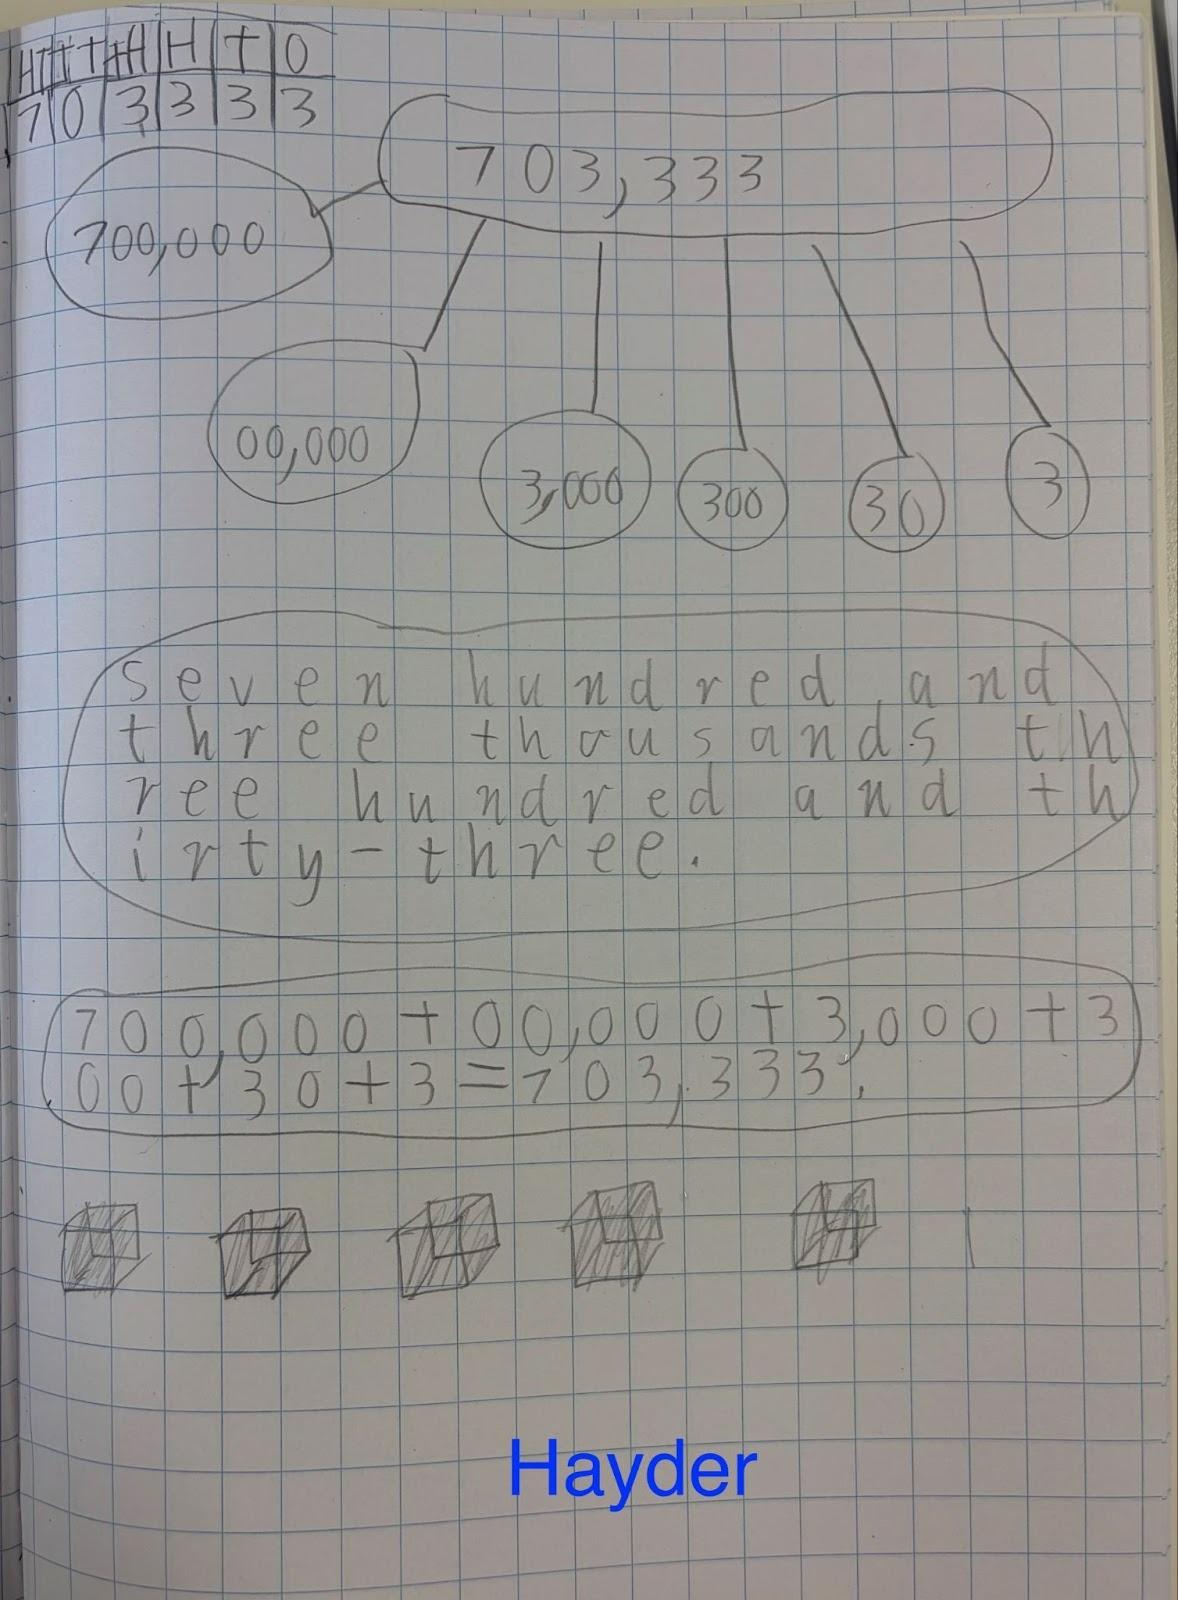 HT TT TH H T O
7 0 3 3 3 3
703,333
700,000
00,000
3,000 300 30 3
seven hundred and
three thousands th
ree hundred and th
irty-three.
700,000 + 00,000 + 3,000 + 3
00 + 30 + 3 = 703,333.
Hayder